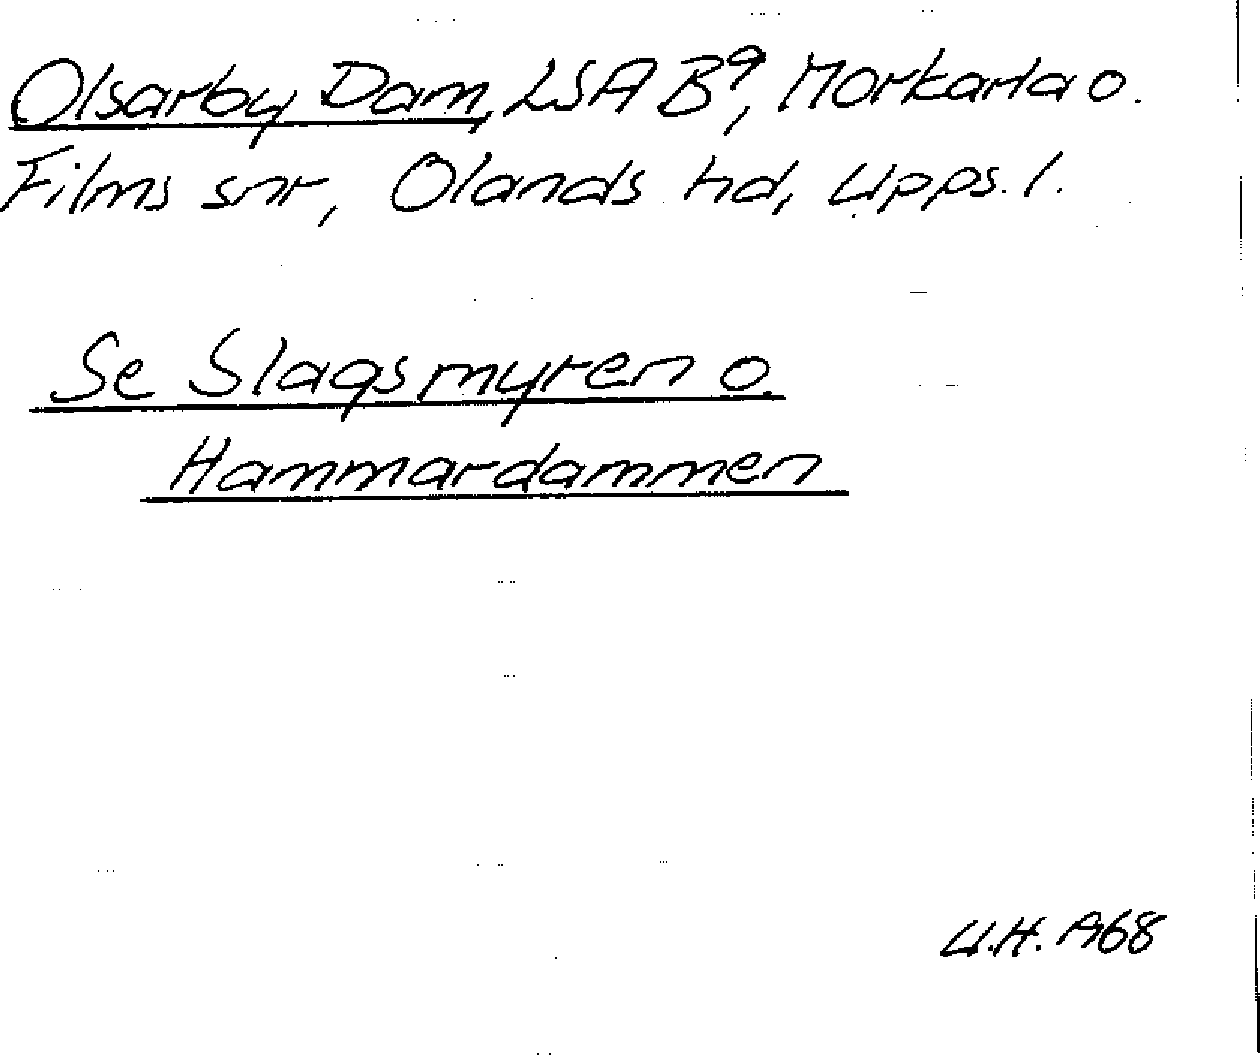 Olsarby Dam, LSA B⁹, Morkarla o.
Films snr, Olands hd, Upps. l.
Se Slagsmyren o.
Hammardammen
U.H. A68